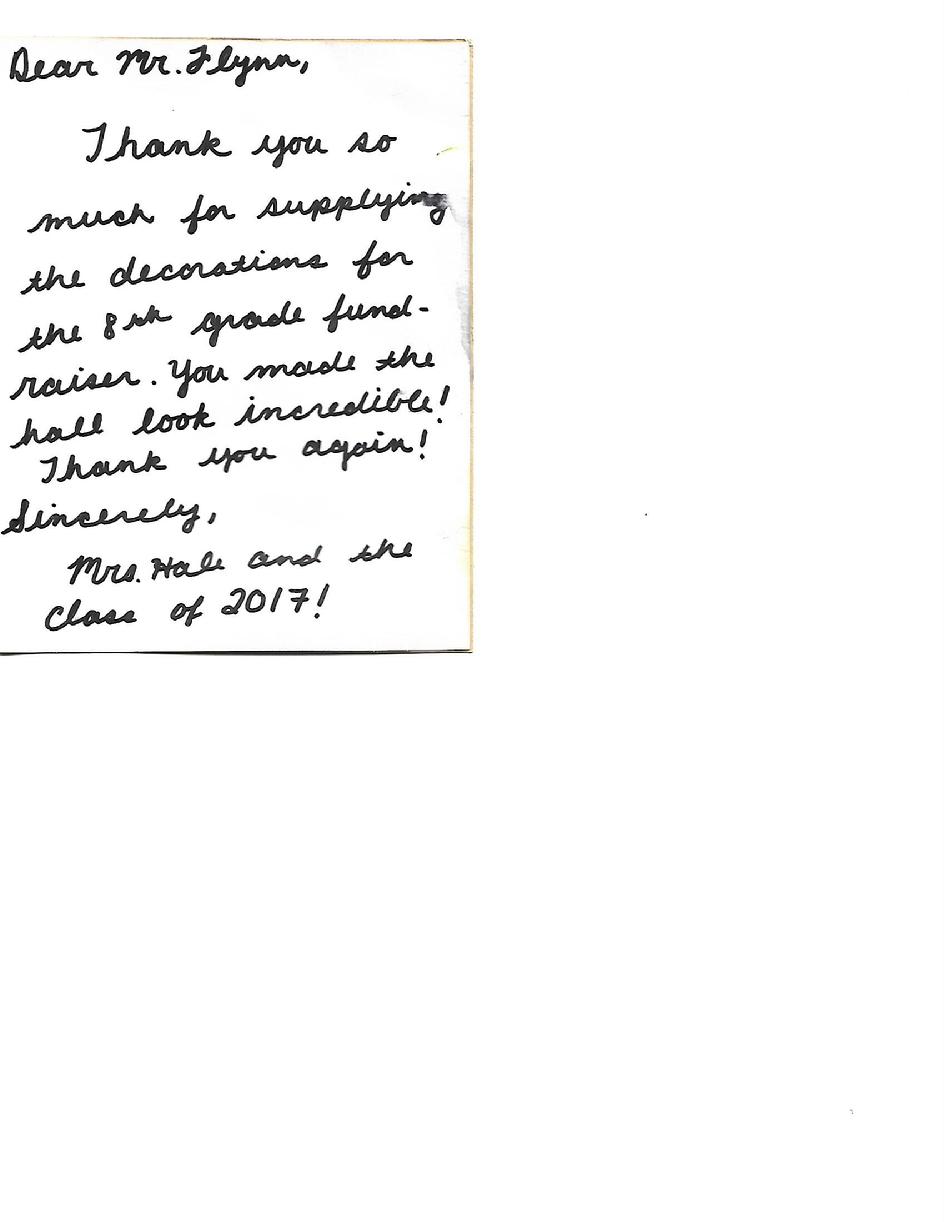 Dear Mr. Flynn,
Thank you so
much for supplying
the decorations for
the 8th grade fund-
raiser. You made the
hall look incredible!
Thank you again!
Sincerely,
Mrs. Hale and the
Class of 2017!